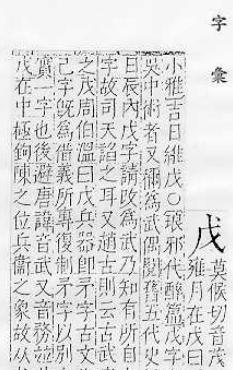 字彙
戊
莫候切音茂
雍月在戊曰
小雅吉日維戊○琅邪代醉篇戊字
吳中術者又稱為武偶閱舊五代史
日辰內戊字請改為武乃知有所自
字故司天諂之耳又趙古則云古武
之戊周伯溫曰戊兵器即矛字古文
己字既為借義所專復制矛字以別
實一字也後避唐諱音武又音務竝
戊在中極鉤陳之位兵衛之象故从